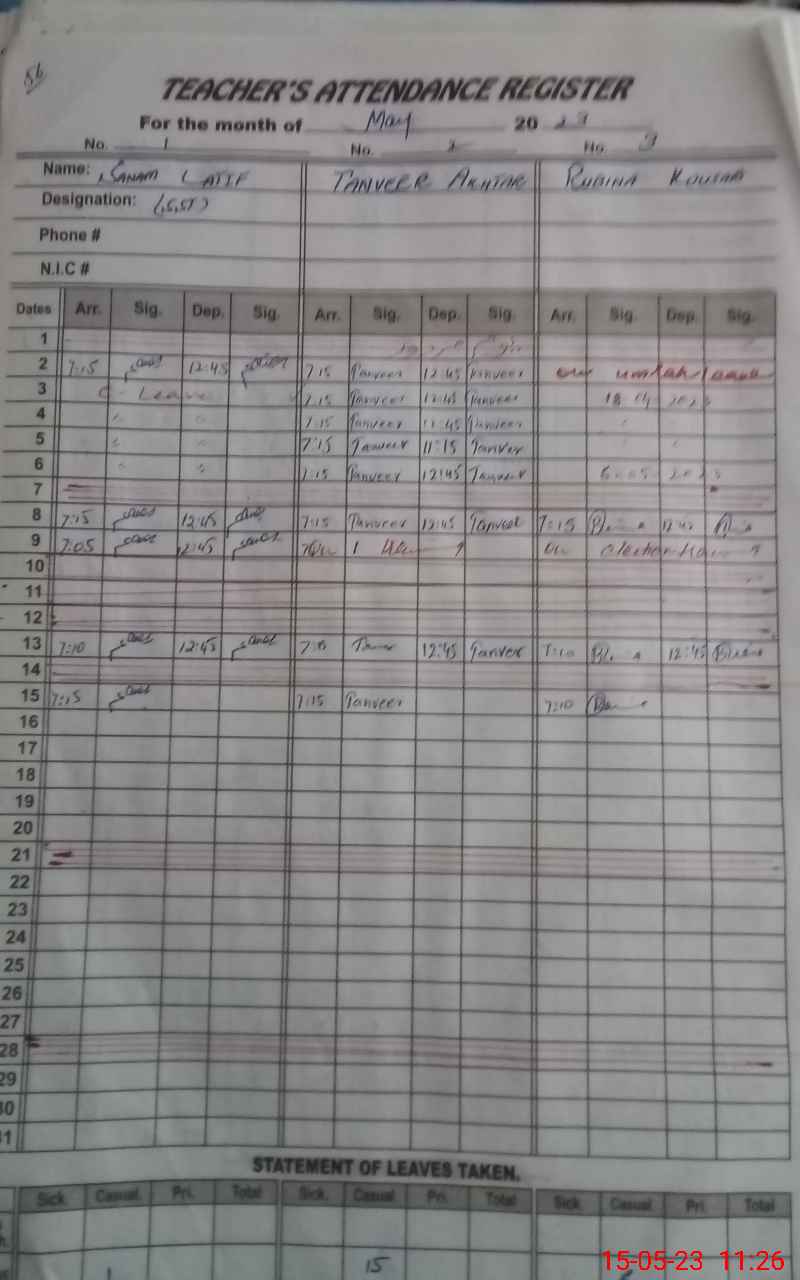 56
TEACHER'S ATTENDANCE REGISTER
For the month of May 2023
No. 1 No. 2 No. 3
Name: SANAM LATIF TANVEER AKHTAR RUBINA KOUSAR
Designation: (SST)
Phone #
N.I.C #
Dates Arr. Sig. Dep. Sig. Arr. Sig. Dep. Sig. Arr. Sig. Dep. Sig.
1
2 7:15 12:45 7:15 Tanveer 12:45 Tanveer on umrah leave
3 C - Leave 7:15 Tanveer 12:45 Tanveer 18 04 2023
4 " " 7:15 Tanveer 11:45 Tanveer "
5 " " 7:15 Tanveer 11:15 Tanveer " "
6 " " 7:15 Tanveer 12:45 Tanveer 6-05 2023
7
8 7:15 12:45 7:15 Tanveer 12:45 Tanveer 7:15 12:45
9 7:05 12:45 on election
10
11
12
13 7:10 12:45 12:45 Tanveer 7:10 12:45
14
15 7:15 7:15 Tanveer 7:10
16
17
18
19
20
21
22
23
24
25
26
27
28
29
30
31
STATEMENT OF LEAVES TAKEN.
Sick Casual Pri. Total Sick. Casual Pri. Total Sick. Casual Pri. Total
1 15
15-05-23 11:26